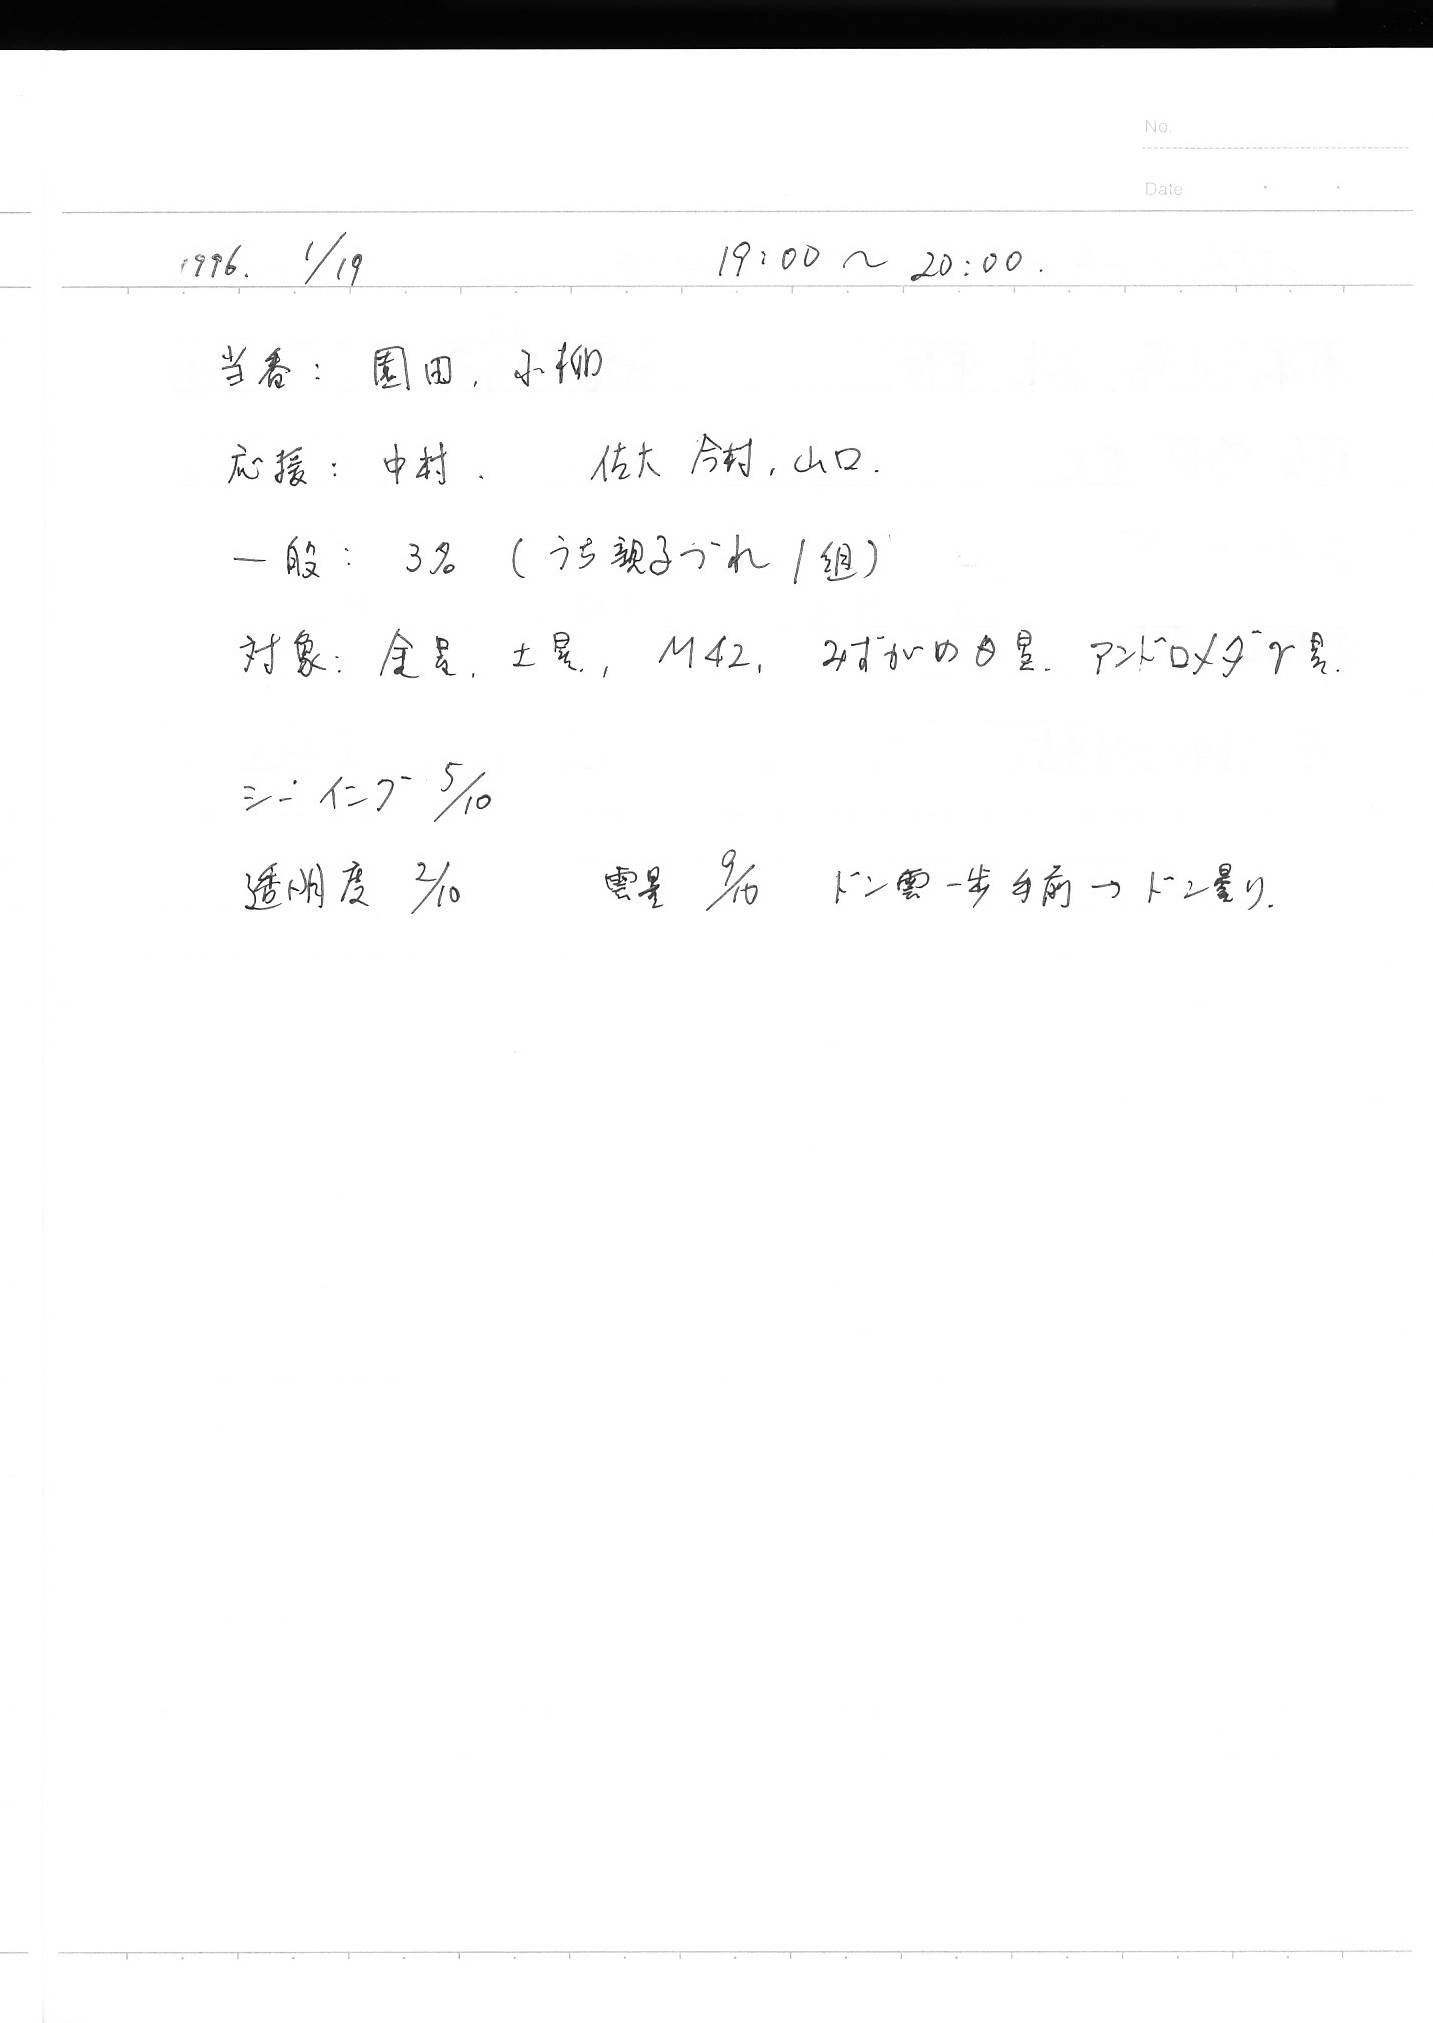 No.
Date
1996. 1/19 19:00 〜 20:00.
当番: 園田, 小柳
応援: 中村. 佐大 今村, 山口.
一般: 3名 (うち親子づれ 1組)
対象: 金星, 土星, M42, みずがめ 星. アンドロメダγ星.
シーイング 5/10
透明度 2/10 雲量 9/10 ドン雲一歩手前→ドン曇り.